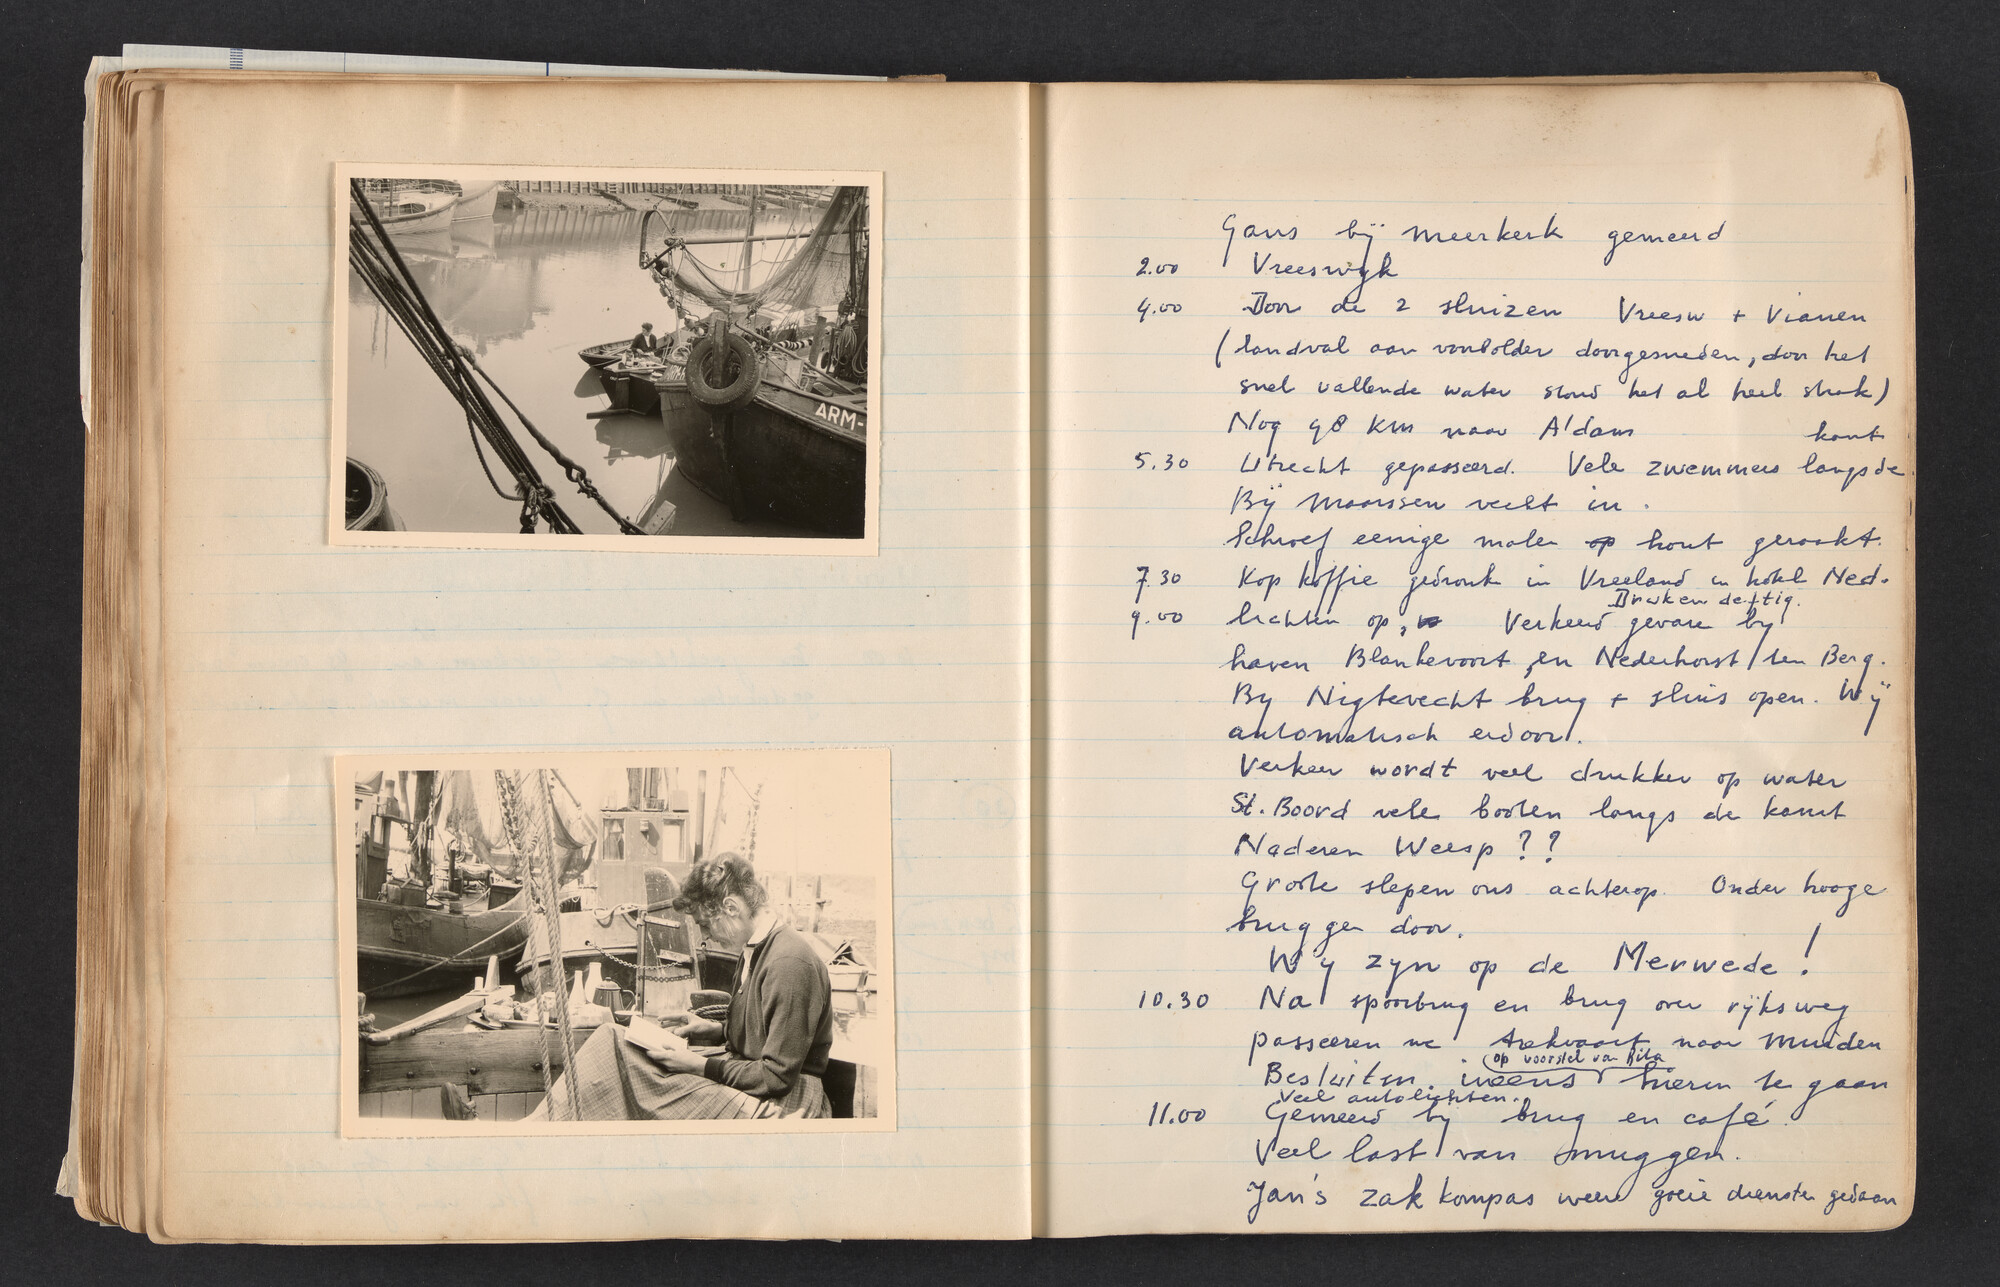 ARM-
Gans bij Meerkerk gemeerd
2.00 Vreeswijk
4.00 Door de 2 sluizen Vreesw + Vianen
(landval aan vooolder doorgesneden, door het
snel vallende water stond het al heel strak)
Nog 48 km naar A'dam
kant
5.30 Utrecht gepasseerd. Vele zwemmers langs de
Bij Maarssen vecht in.
Schroef eenige malen op hout geraakt.
7.30 Kop koffie gedronk in Vreeland in hotel Ned.
Drukken deftig.
9.00 lichten op, Verkeerd gevare bij
haven Blankevoort, en Nederhorst ten Berg.
By Nigtevecht brug + sluis open. Wij
automatisch erdoor.
Verkeer wordt veel drukker op water
St. Boord vele booten langs de kant
Naderen Weesp ??
Groote slepen ons achterop. Onder hooge
bruggen door.
Wy zyn op de Merwede!
10.30 Na spoorbrug en brug over rijksweg
passeeren we trekvaart naar Muiden
op voorstel van Rita
Besluiten ineens hierin te gaan
Veel autolichten.
11.00 Gemeerd bij brug en café.
Veel last van muggen.
Jan's zakkompas weer goeie diensten gedaan